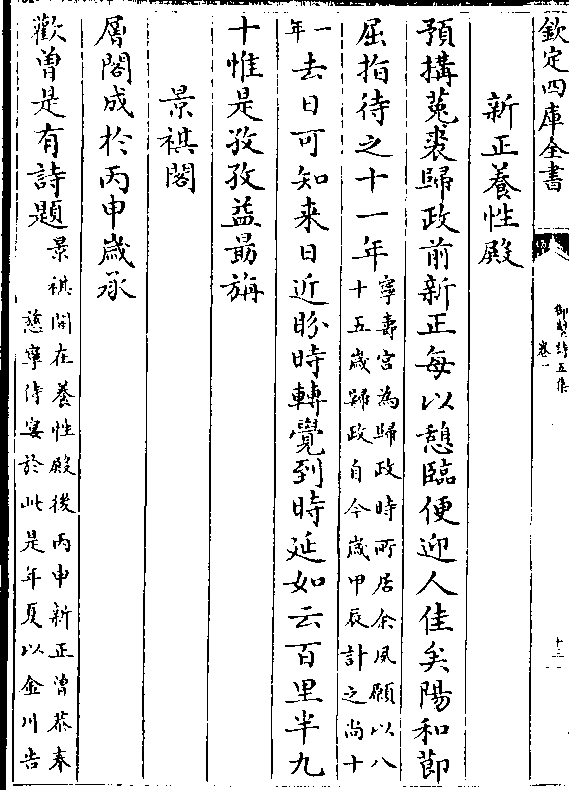 欽定四庫全書
御製詩五集
卷一
十三
新正養性殿
預搆菟裘歸政前新正每以憩臨便迎人佳矣陽和節
屈指待之十一年寧壽宮為歸政時所居余夙願以八
十五歲歸政自今歲甲辰計之尚十
一年去日可知来日近盼時轉覺到時延如云百里半九
十惟是孜孜益勗旃
景祺閣
層閣成於丙申歲承
歡曾是有詩題景祺閣在養性殿後丙申新正曾恭奉
慈寧侍宴於此是年夏以金川告